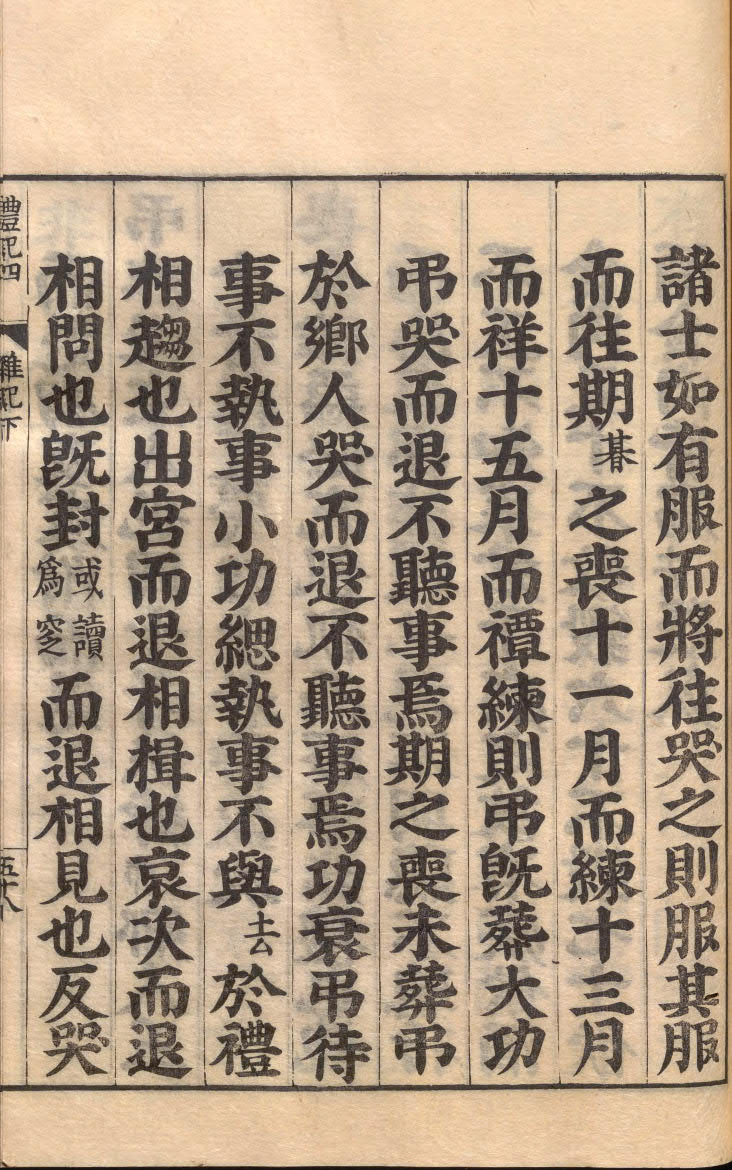 諸士如有服而將往哭之則服其服
而往期朞之喪十一月而練十三月
而祥十五月而禫練則弔旣葬大功
弔哭而退不聽事焉期之喪未葬弔
於鄉人哭而退不聽事焉功衰弔待
事不執事小功緦執事不與去於禮
相趨也出宮而退相揖也哀次而退
相問也旣封或讀爲窆而退相見也反哭
禮記四 雜記下 五十八